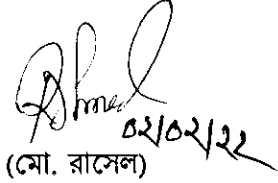 ০২/০২/২২
(মো. রাসেল)